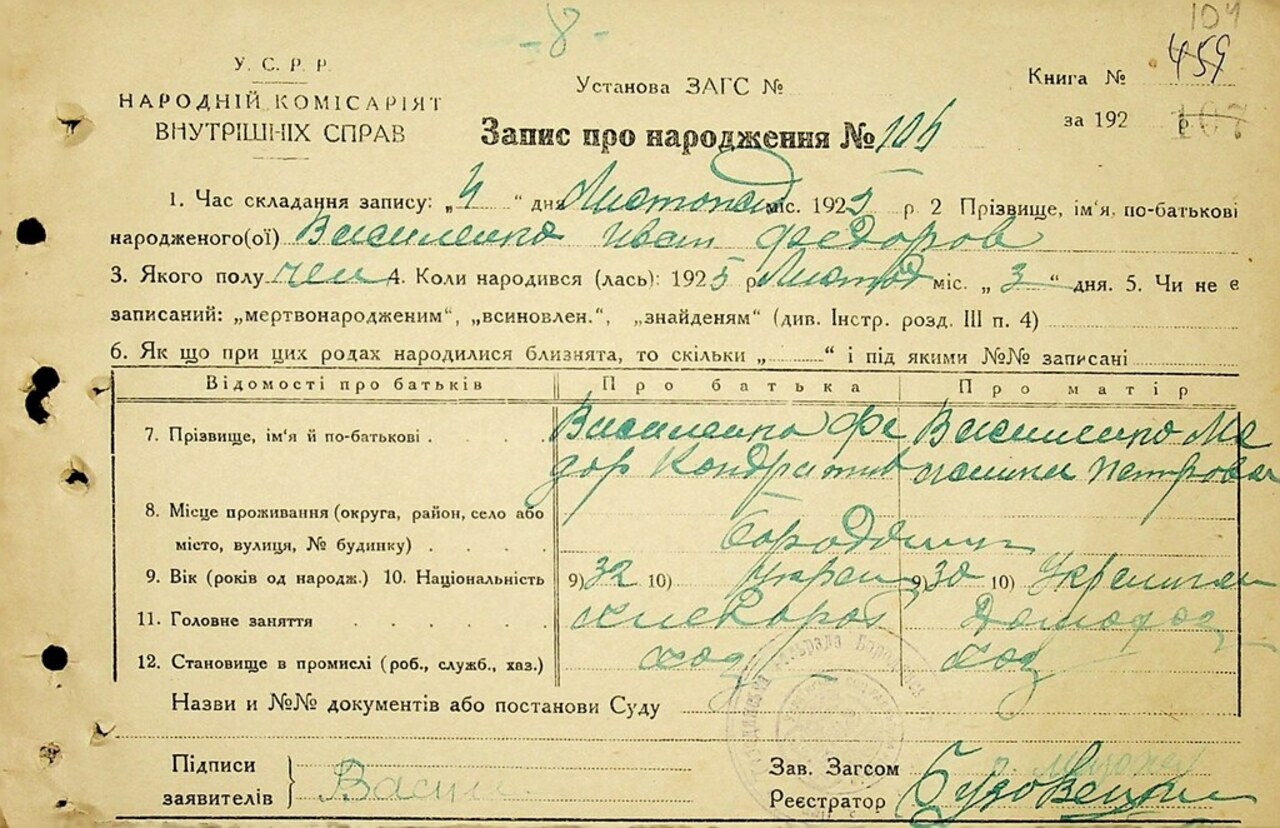 104
- 8 -
459
У. С. Р. Р.
НАРОДНІЙ КОМІСАРІЯТ
ВНУТРІШНІХ СПРАВ
Установа ЗАГС №
Книга №
за 192 р. 107
Запис про народження № 105
1. Час складання запису: „ 4 “ дня Листопад міс. 1925 р. 2 Прізвище, ім'я, по-батькові
народженого(ої) Василенко Иван Федоров
3. Якого полу чол 4. Коли народився (лась): 1925 р Листоп міс. „ 3 “ дня. 5. Чи не є
записаний: „мертвонародженим“, „всиновлен.“, „знайденям“ (див. Інстр. розд. III п. 4)
6. Як що при цих родах народилися близнята, то скільки „ “ і під якими №№ записані
Відомості про батьків Про батька Про матір
7. Прізвище, ім'я й по-батькові Василенко Фе Василенко Ме
дор Кондратів Петрова
8. Місце проживання (округа, район, село або
місто, вулиця, № будинку)
9. Вік (років од народж.) 10. Національність 9) 32 10) Украї 9) 30 10)
11. Головне заняття хлебороб Домогос
12. Становище в промислі (роб., служб., хаз.) хоз хоз
Назви и №№ документів або постанови Суду
Підписи
заявителів Васил
Зав. Загсом
Реєстратор